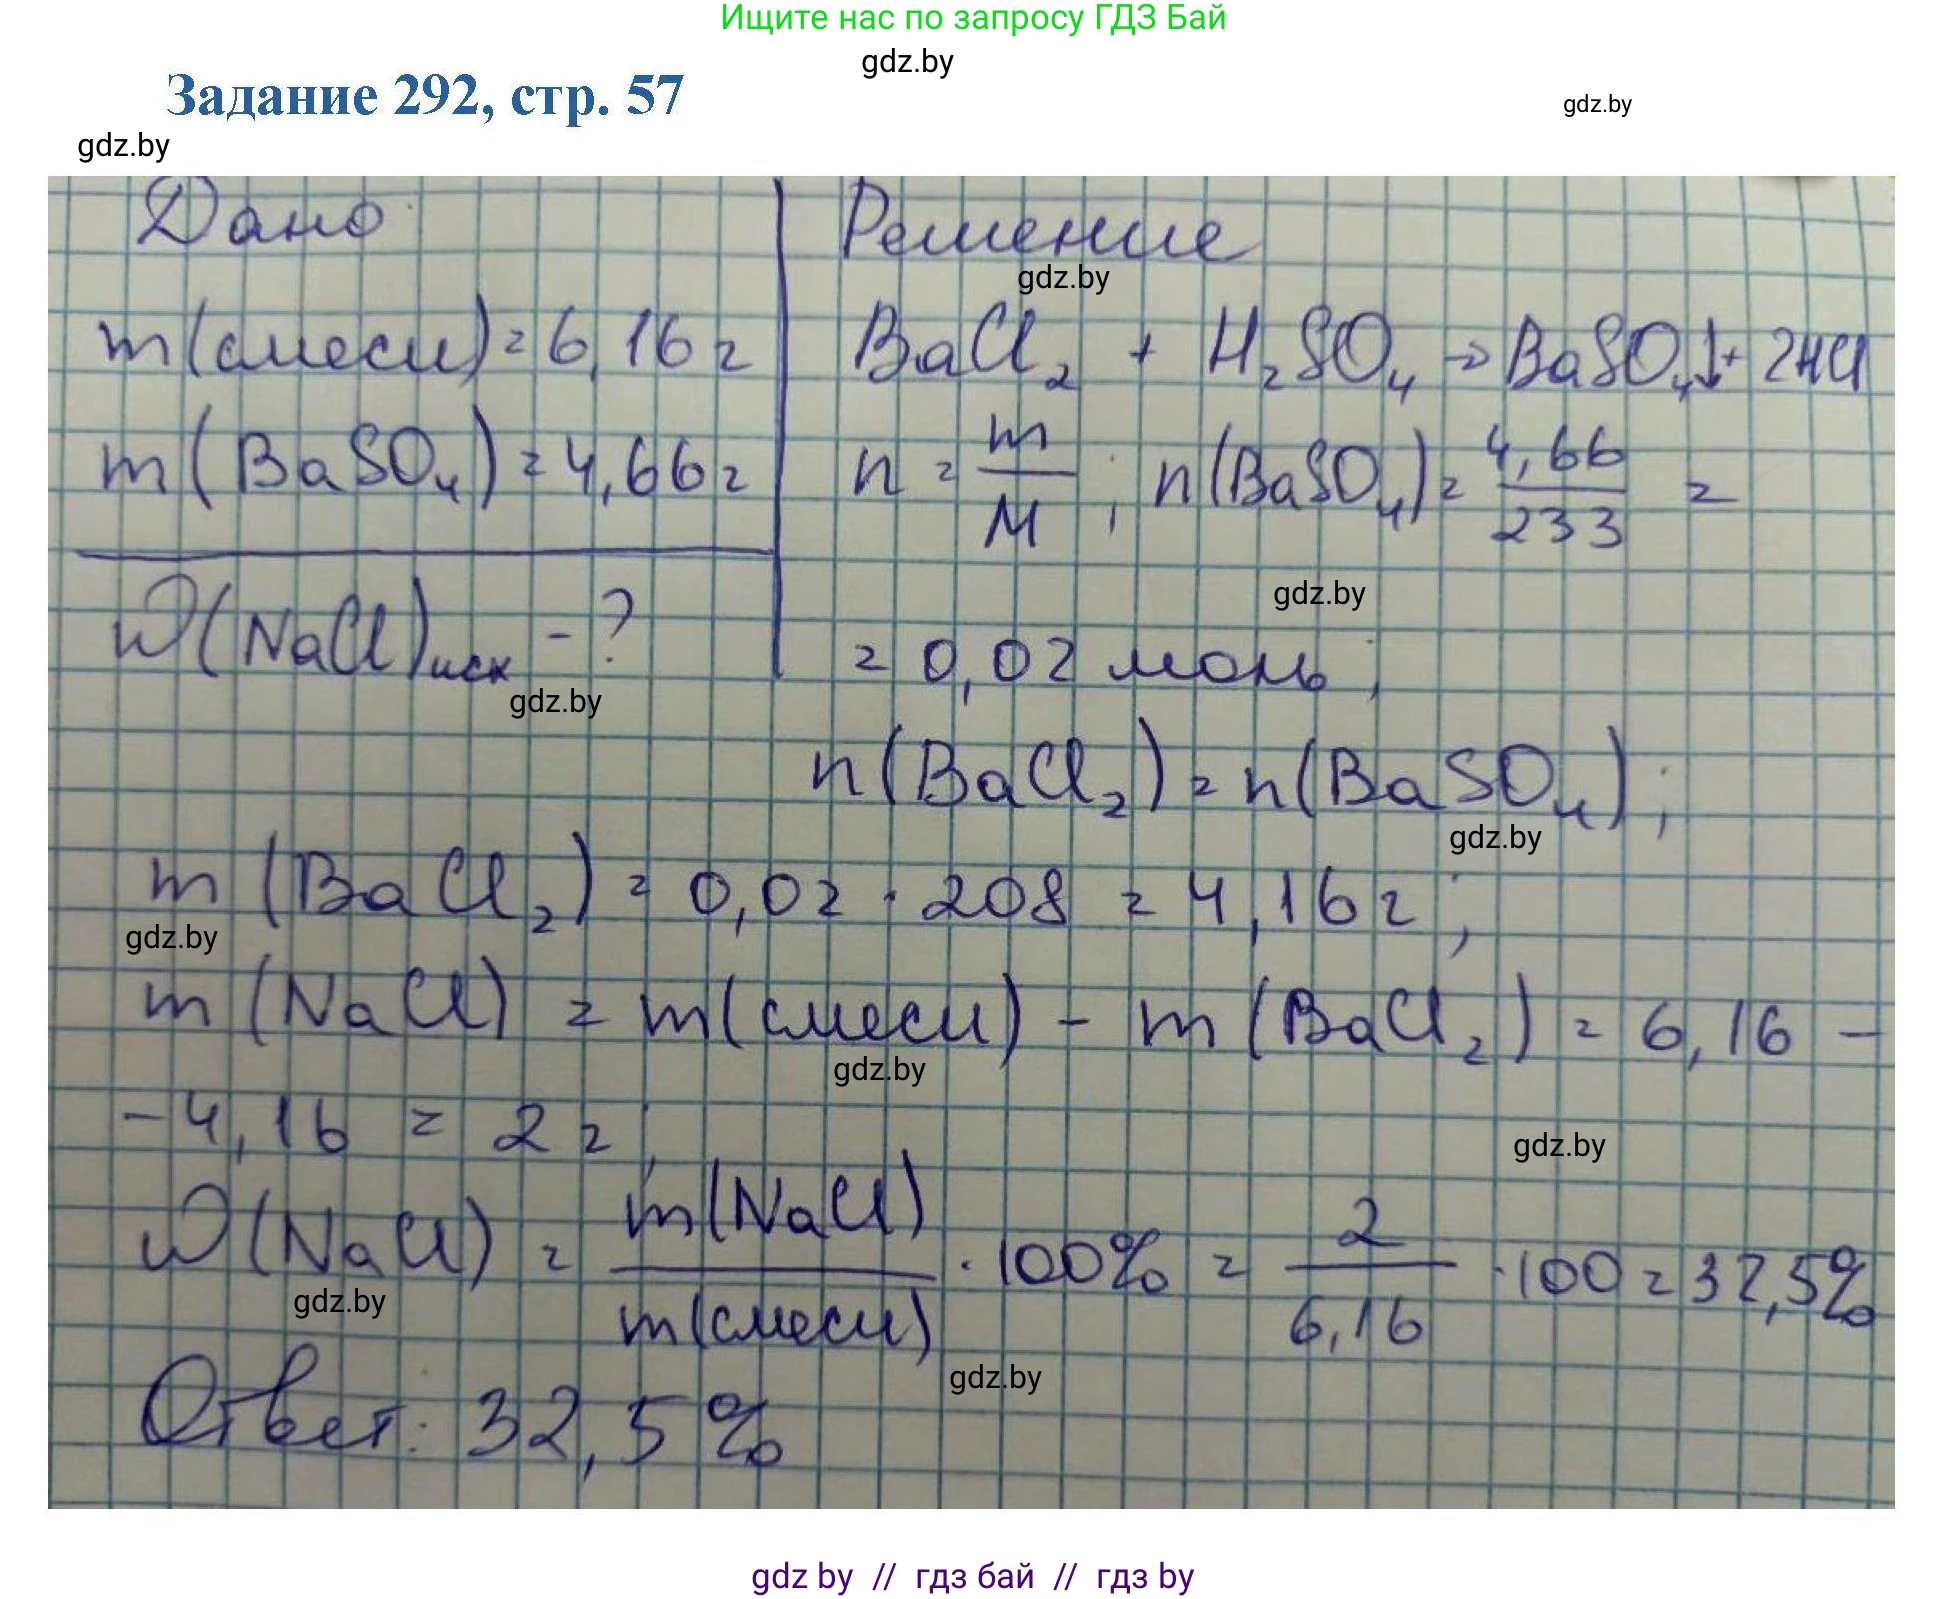 Ищите нас по запросу ГДЗ Бай
gdz.by
Задание 292, стр. 57
gdz.by
gdz.by
Дано
m(смеси)=6,16г
m(BaSO₄)=4,66г
W(NaCl)исх - ?
gdz.by
Решение
gdz.by
BaCl₂ + H₂SO₄ → BaSO₄↓ + 2HCl
n = m/M ; n(BaSO₄) = 4,66/233 =
gdz.by
= 0,02 моль ;
n(BaCl₂) = n(BaSO₄) ;
gdz.by
m(BaCl₂) = 0,02 · 208 = 4,16г ;
gdz.by
m(NaCl) = m(смеси) - m(BaCl₂) = 6,16 -
gdz.by
- 4,16 = 2г ;
gdz.by
W(NaCl) = m(NaCl)/m(смеси) · 100% = 2/6,16 · 100 = 32,5%
gdz.by
gdz.by
Ответ: 32,5%
gdz by // гдз бай // гдз by